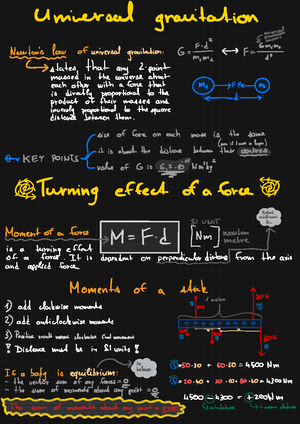 Universal gravitation
Newton's law of universal gravitation:
states, that any 2 point
massed in the universe attract
each other with a force that
is directly proportional to the
product of their masses and
inversely proportional to the square
distance between them.
G = F·d² / m₁m₂ ↔ F = G m₁m₂ / d²
m₁ F F m₂
d
KEY POINTS
size of force on each mass is the same
it is about the distance between their centres
value of G is
Turning effect of a force
Moment of a force
M = F·d
SI UNIT
[Nm]
newton
metre
is a turning effect
of a force. It is dependent on perpendicular distance from the axis
and applied force.
Moments of a stick
1) add clockwise moments
2) add anticlockwise moments
3) Positive result means clockwise final movement
! Distance must be in SI units !
If a body is equilibrium:
in balance
- the vector sum of any forces = 0
- the sum of moments about any point = 0
The sum of moments about any point = zero
50·30 + 60·50 = 4500 Nm
4500 - 4300 = +200 Nm